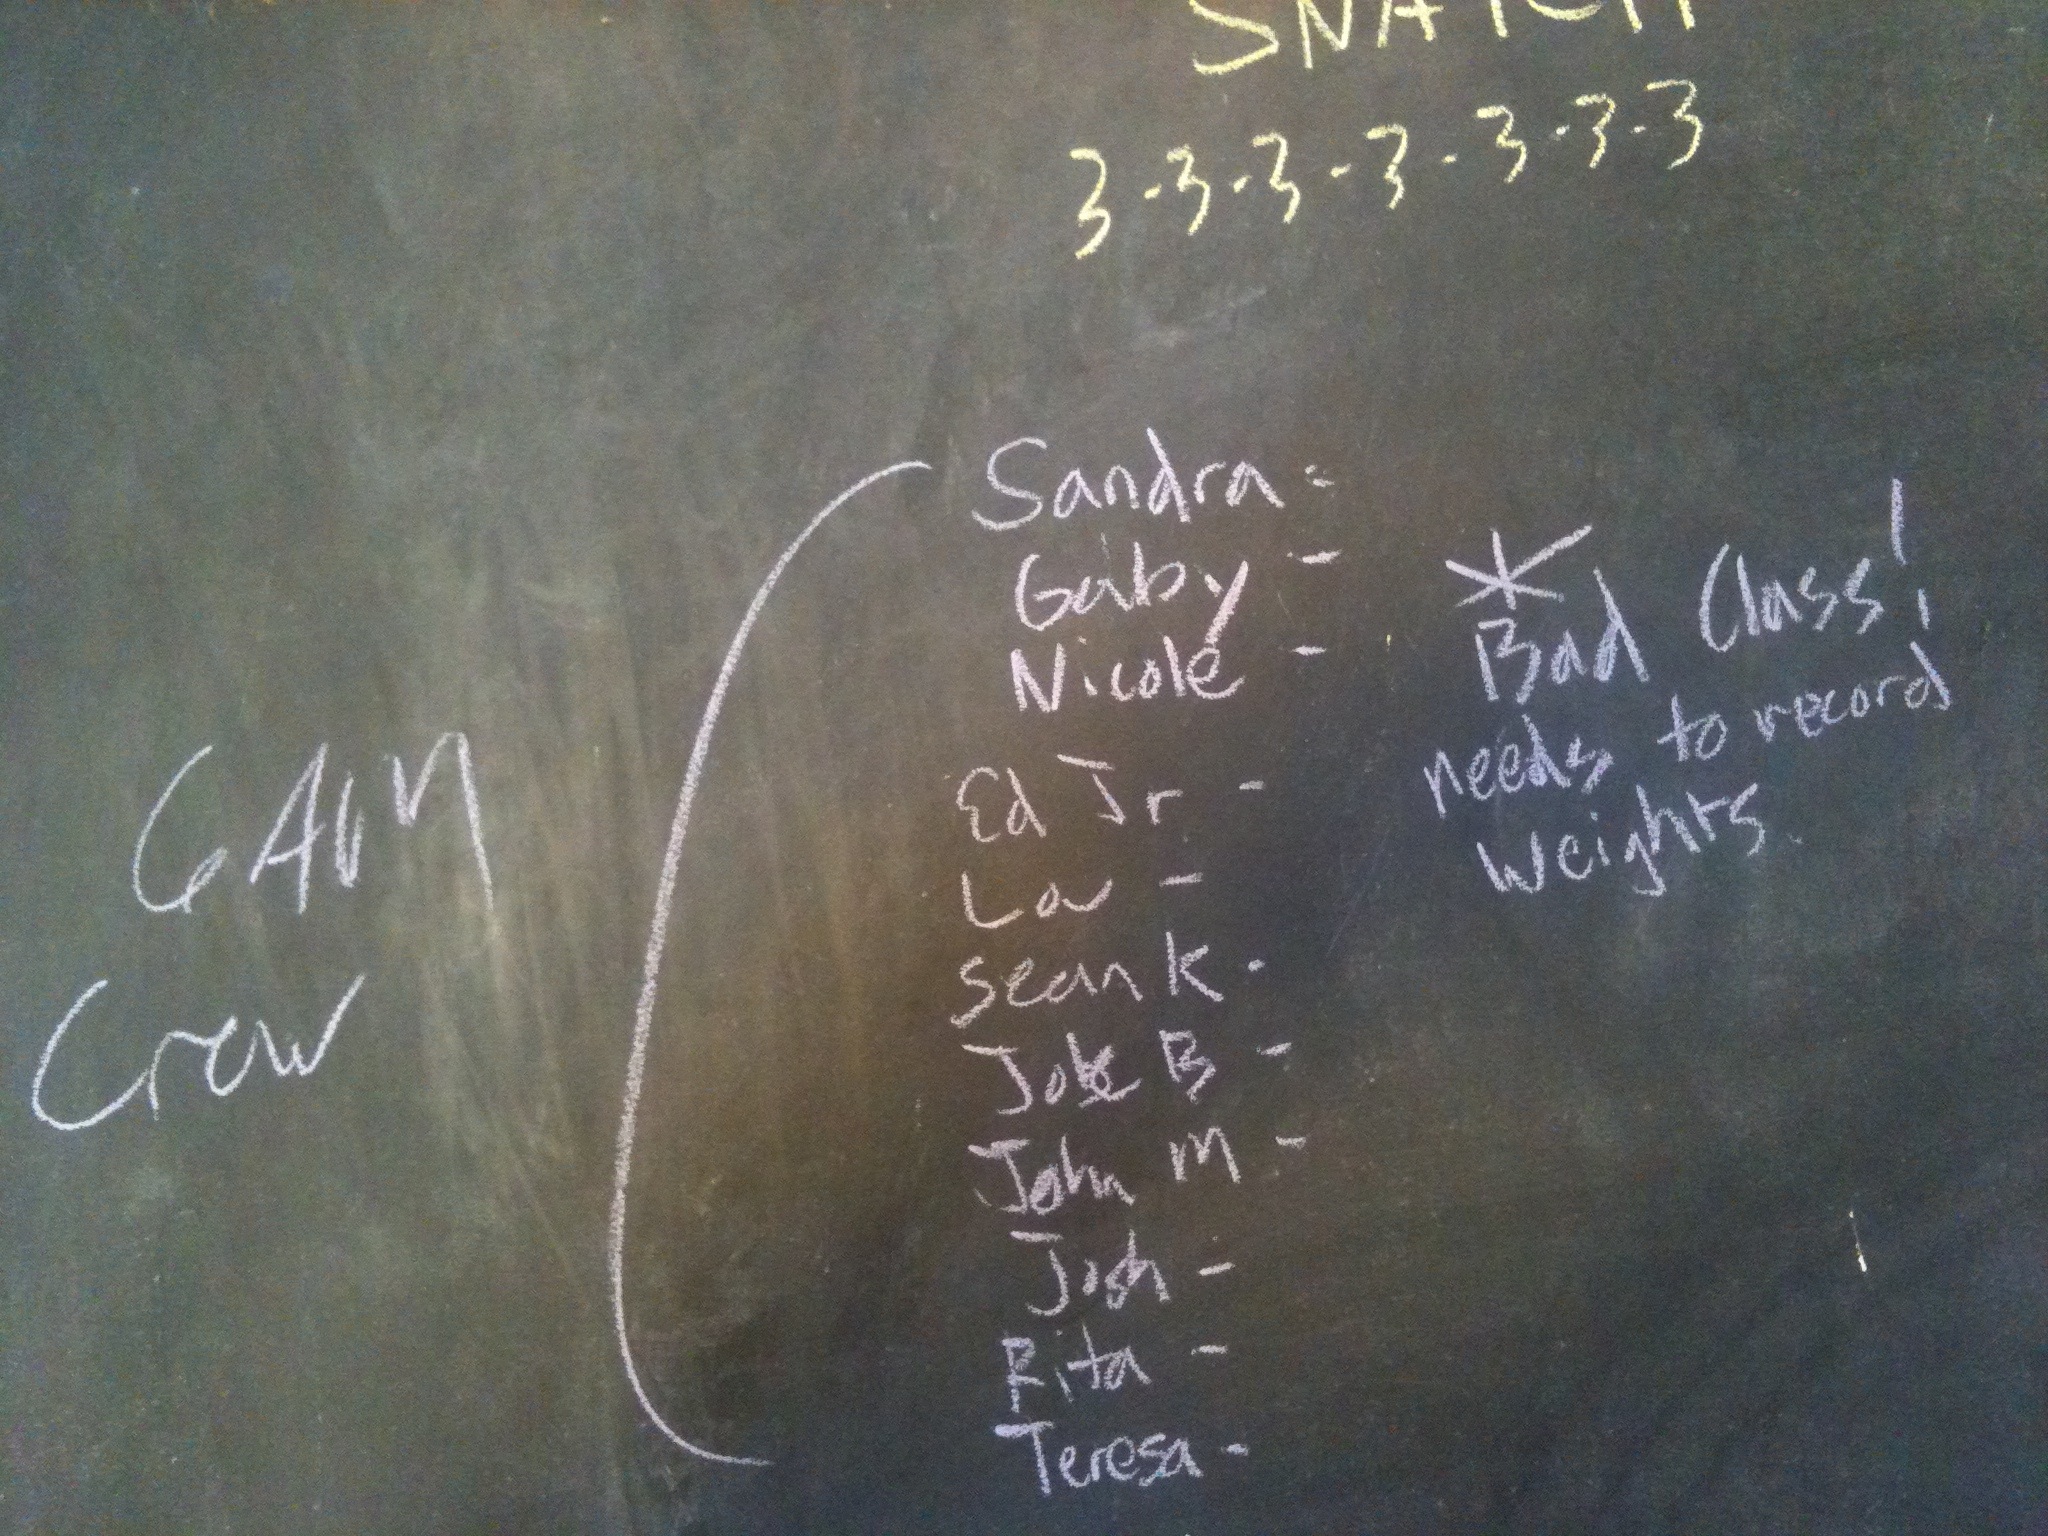 SNATCH
3-3-3-3-3-3-3
Sandra -
Gaby -
Nicole -
Ed Jr -
Lou -
Sean K -
Jake B -
John M -
Josh -
Rita -
Teresa -
6AM
Crew
* Bad Class!!
needs to record
weights.